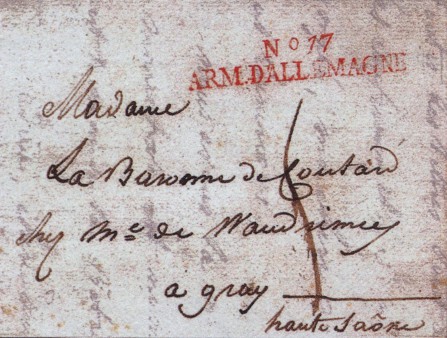 No 17
ARM.DALLEMAGNE
Madame
La Baronne de Coutard
chez Mde de Vaudrimey
a gray
haute Saône